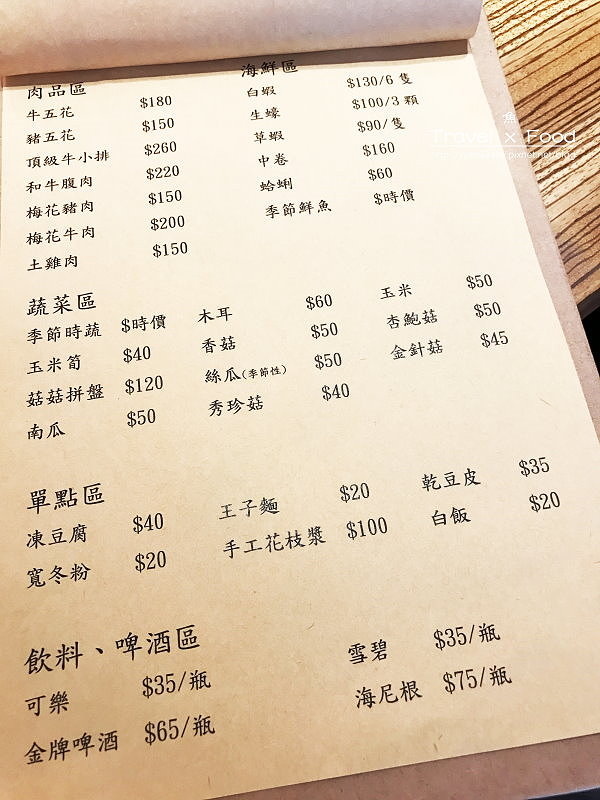 肉品區
牛五花 $180
豬五花 $150
頂級牛小排 $260
和牛腹肉 $220
梅花豬肉 $150
梅花牛肉 $200
土雞肉 $150
海鮮區
白蝦 $130/6 隻
生蠔 $100/3 顆
草蝦 $90/隻
中卷 $160
蛤蜊 $60
季節鮮魚 $時價
魚
Travel x Food
蔬菜區
季節時蔬 $時價 木耳 $60 玉米 $50
玉米筍 $40 香菇 $50 杏鮑菇 $50
菇菇拼盤 $120 絲瓜(季節性) $50 金針菇 $45
南瓜 $50 秀珍菇 $40
單點區
凍豆腐 $40 王子麵 $20 乾豆皮 $35
寬冬粉 $20 手工花枝漿 $100 白飯 $20
飲料、啤酒區
可樂 $35/瓶 雪碧 $35/瓶
金牌啤酒 $65/瓶 海尼根 $75/瓶